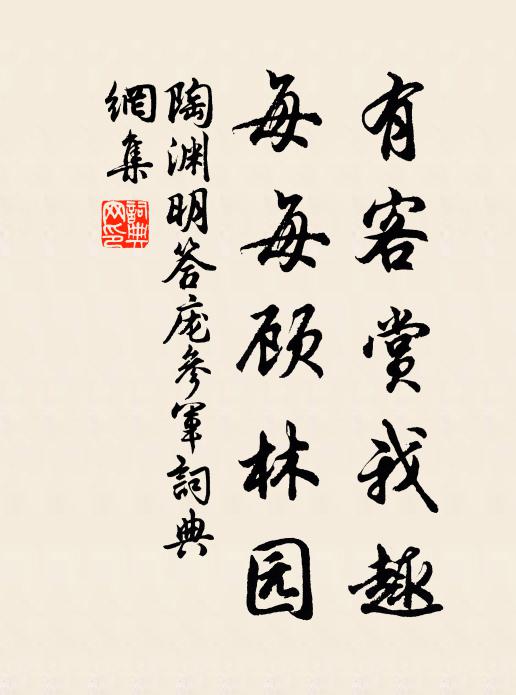 有客赏我趣
每每顾林园
陶渊明答庞参军詞典
網集
詞典网印